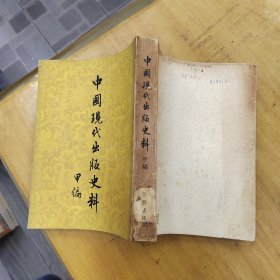 中國現代出版史料
甲編
中國現代出版史料
甲編